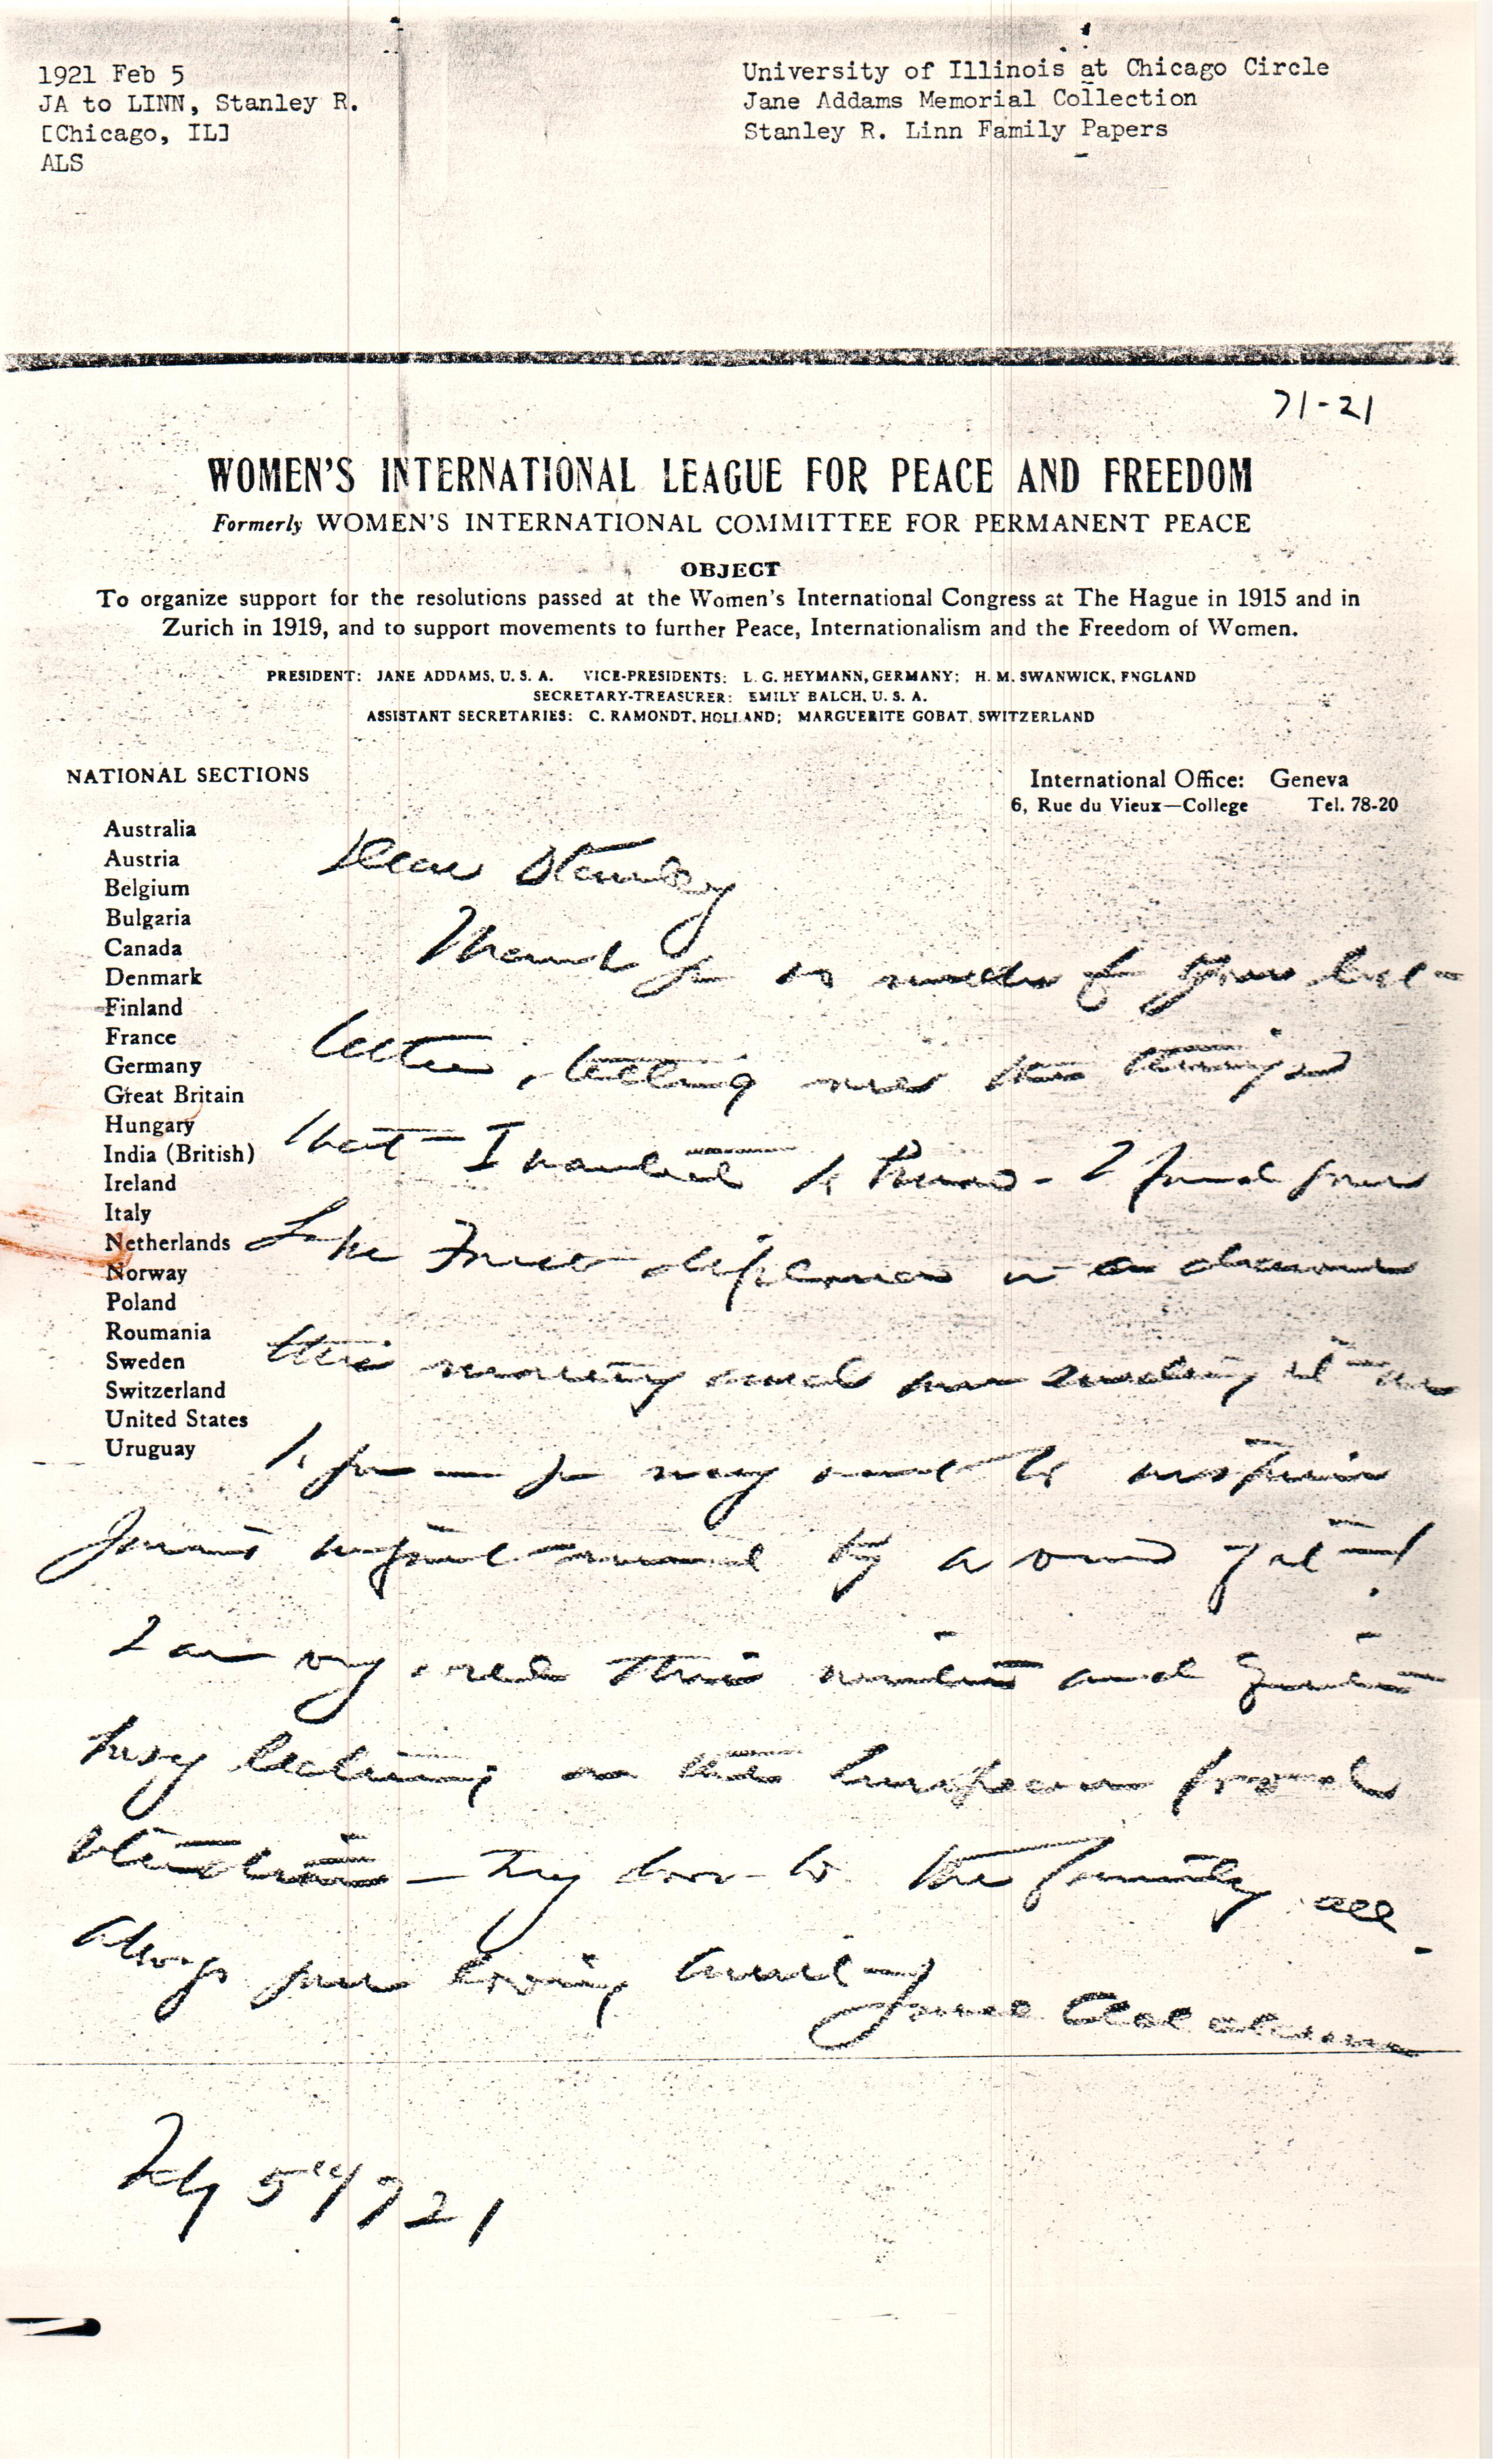 1921 Feb 5
JA to LINN, Stanley R.
[Chicago, IL]
ALS
University of Illinois at Chicago Circle
Jane Addams Memorial Collection
Stanley R. Linn Family Papers
71-21
WOMEN'S INTERNATIONAL LEAGUE FOR PEACE AND FREEDOM
Formerly WOMEN'S INTERNATIONAL COMMITTEE FOR PERMANENT PEACE
OBJECT
To organize support for the resolutions passed at the Women's International Congress at The Hague in 1915 and in
Zurich in 1919, and to support movements to further Peace, Internationalism and the Freedom of Women.
PRESIDENT: JANE ADDAMS, U. S. A. VICE-PRESIDENTS: L. G. HEYMANN, GERMANY; H. M. SWANWICK, ENGLAND
SECRETARY-TREASURER: EMILY BALCH, U. S. A.
ASSISTANT SECRETARIES: C. RAMONDT, HOLLAND; MARGUERITE GOBAT, SWITZERLAND
NATIONAL SECTIONS
International Office: Geneva
6, Rue du Vieux—College Tel. 78-20
Australia
Austria
Belgium
Bulgaria
Canada
Denmark
Finland
France
Germany
Great Britain
Hungary
India (British)
Ireland
Italy
Netherlands
Norway
Poland
Roumania
Sweden
Switzerland
United States
Uruguay
Dear Stanley
Thank you so much for your
letter, telling me the things
that I wanted to know - I found your
diploma in a drawer
this morning and am sending it
to you — you may need to
by a of it!
I am very well this winter and quite
busy lecturing on the European food
situation — My love to the family all.
Always your loving aunt — Jane Addams
Feby 5" 1921